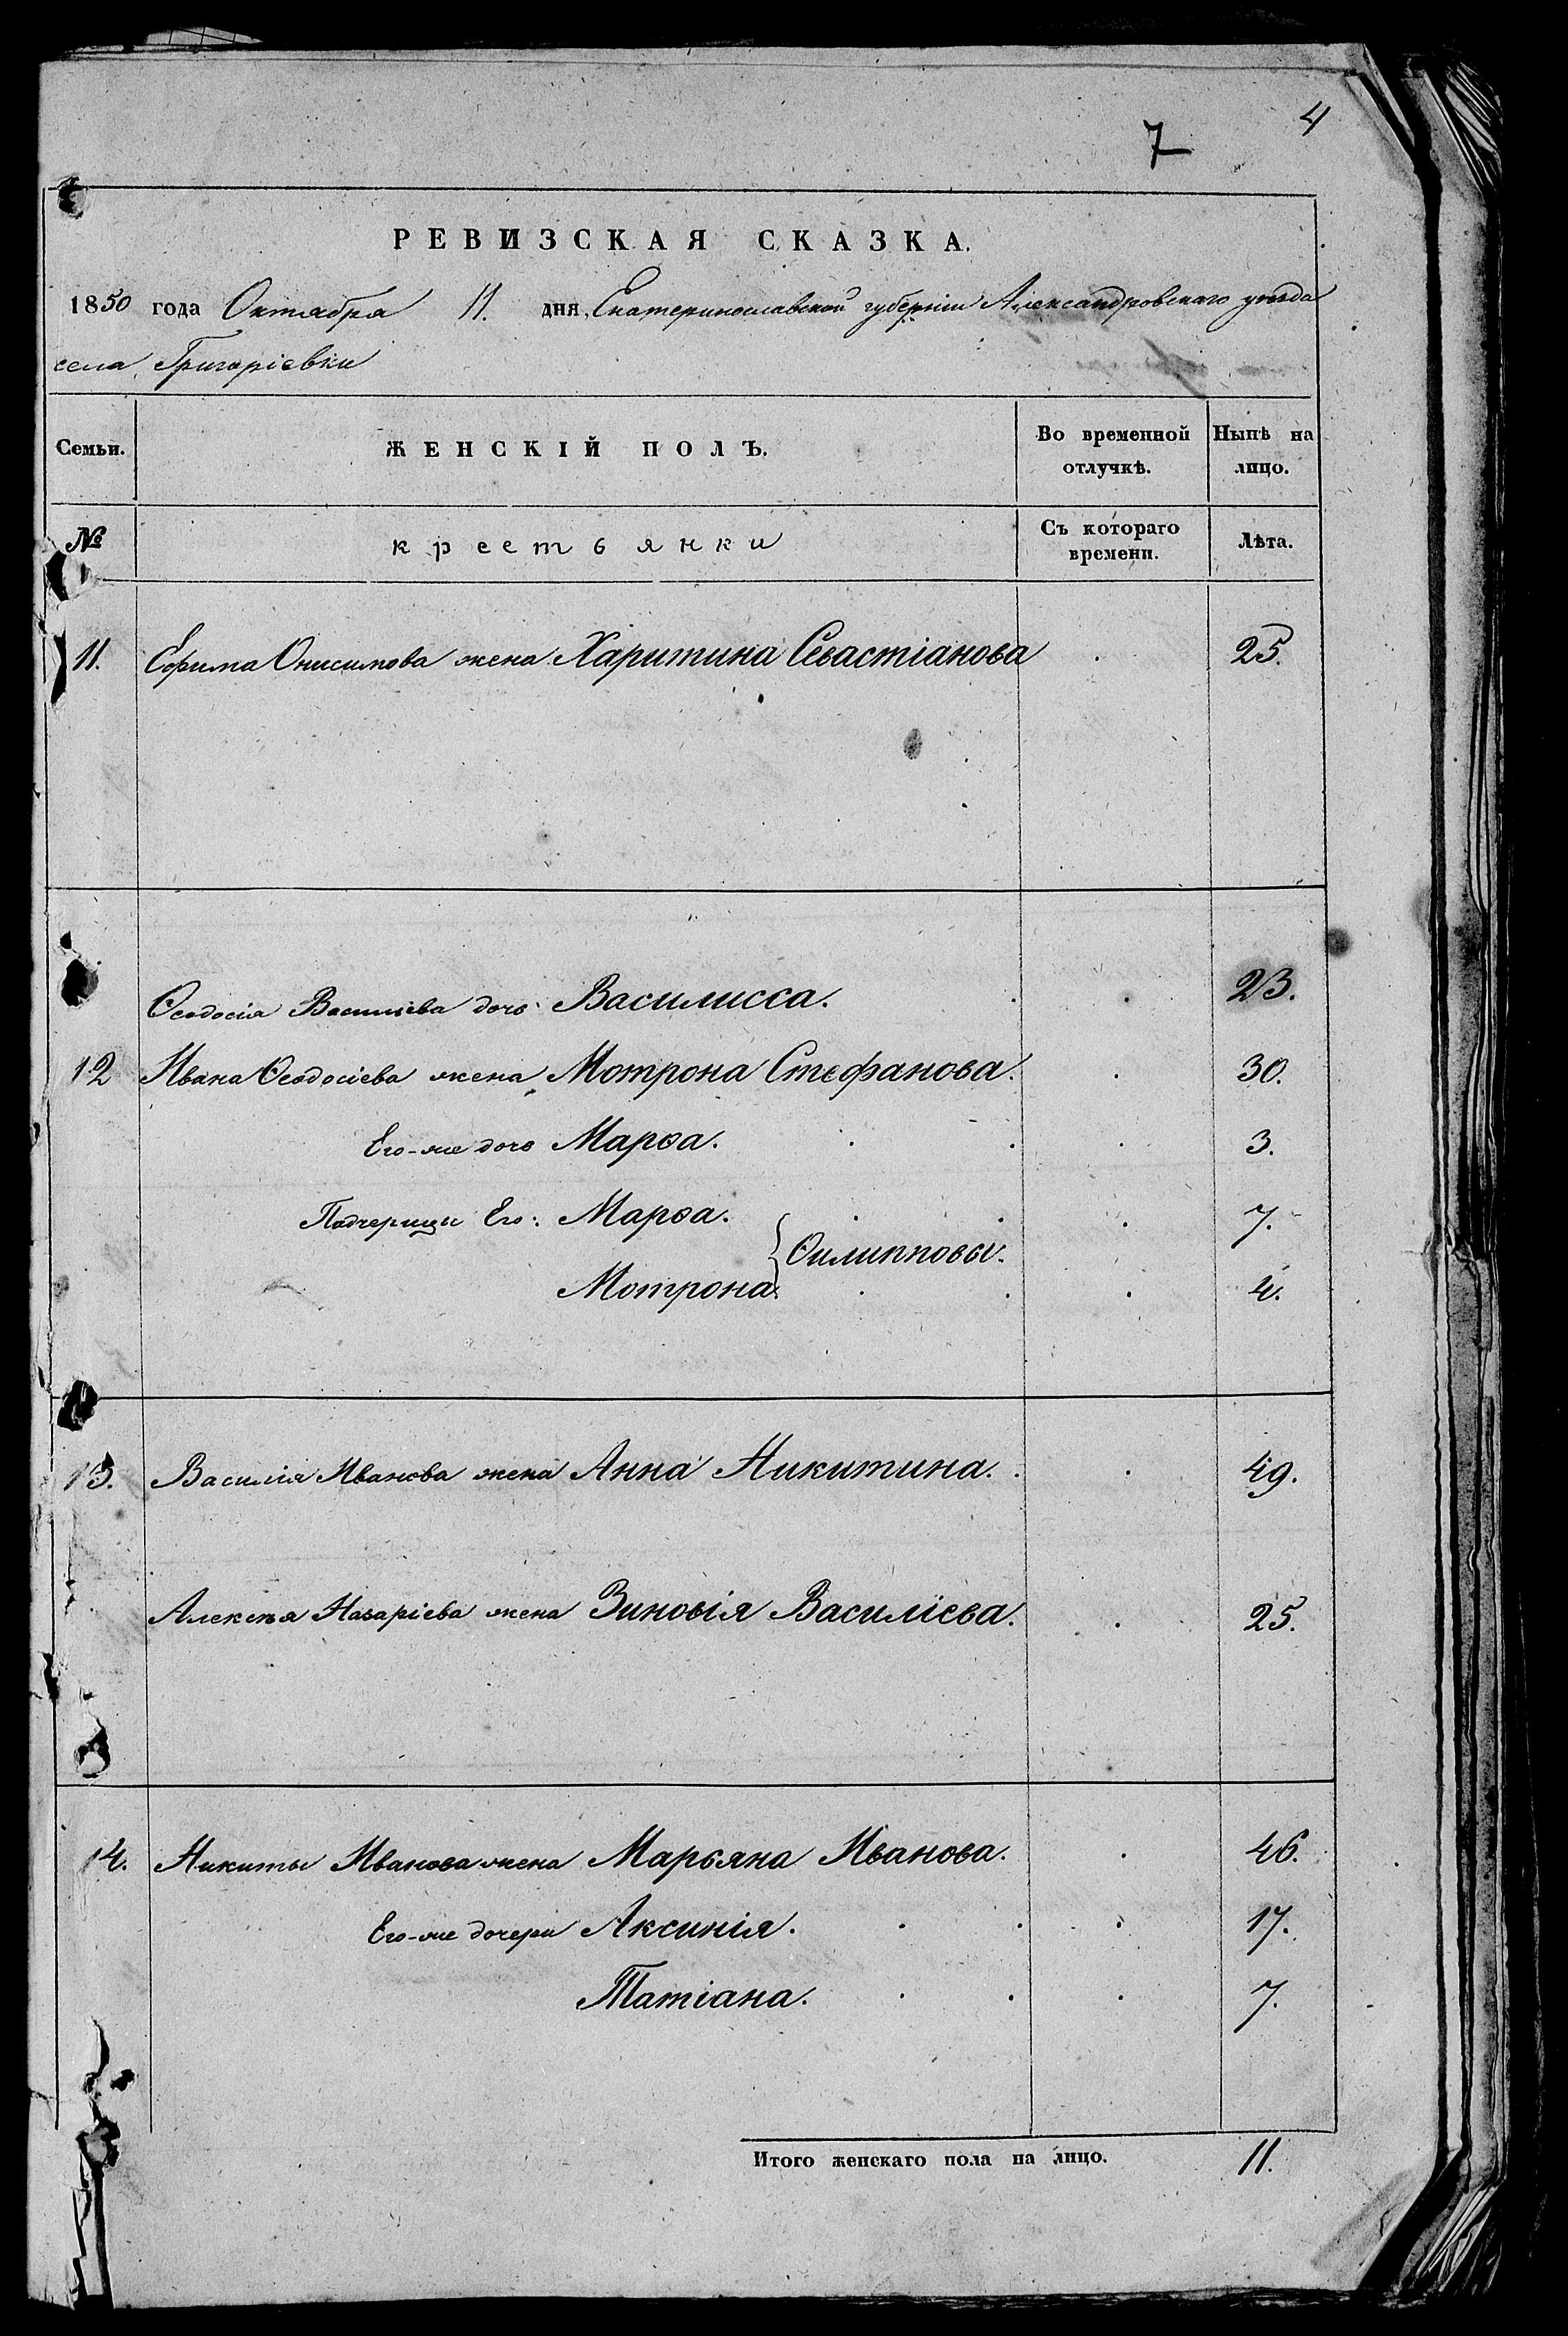 4
7
РЕВИЗСКАЯ СКАЗКА.
1850 года Октября 11. дня, Екатеринославской губерніи Александровскаго уѣзда
села Григоріевки
Семьи. ЖЕНСКІЙ ПОЛЪ. Во временной отлучкѣ. Нынѣ на лицо.
№ крестьянки Съ котораго времени. Лѣта.
11. Ефима Онисимова жена Харитина Севастіанова 25.
Ѳеодосія Василіева дочь Василисса. 23.
12 Ивана Ѳеодосіева жена Мотрона Стефанова. 30.
Его-же дочь Марѳа. 3.
Падчерицы Его: Марѳа. 7.
Ѳилипповы.
Мотрона. 4.
13. Василія Иванова жена Анна Никитина. 49.
Алексѣя Назаріева жена Зиновія Василіева. 25.
14. Никиты Иванова жена Марьяна Иванова. 46.
Его-же дочери Аксинія. 17.
Татіана. 7.
Итого женскаго пола на лицо. 11.